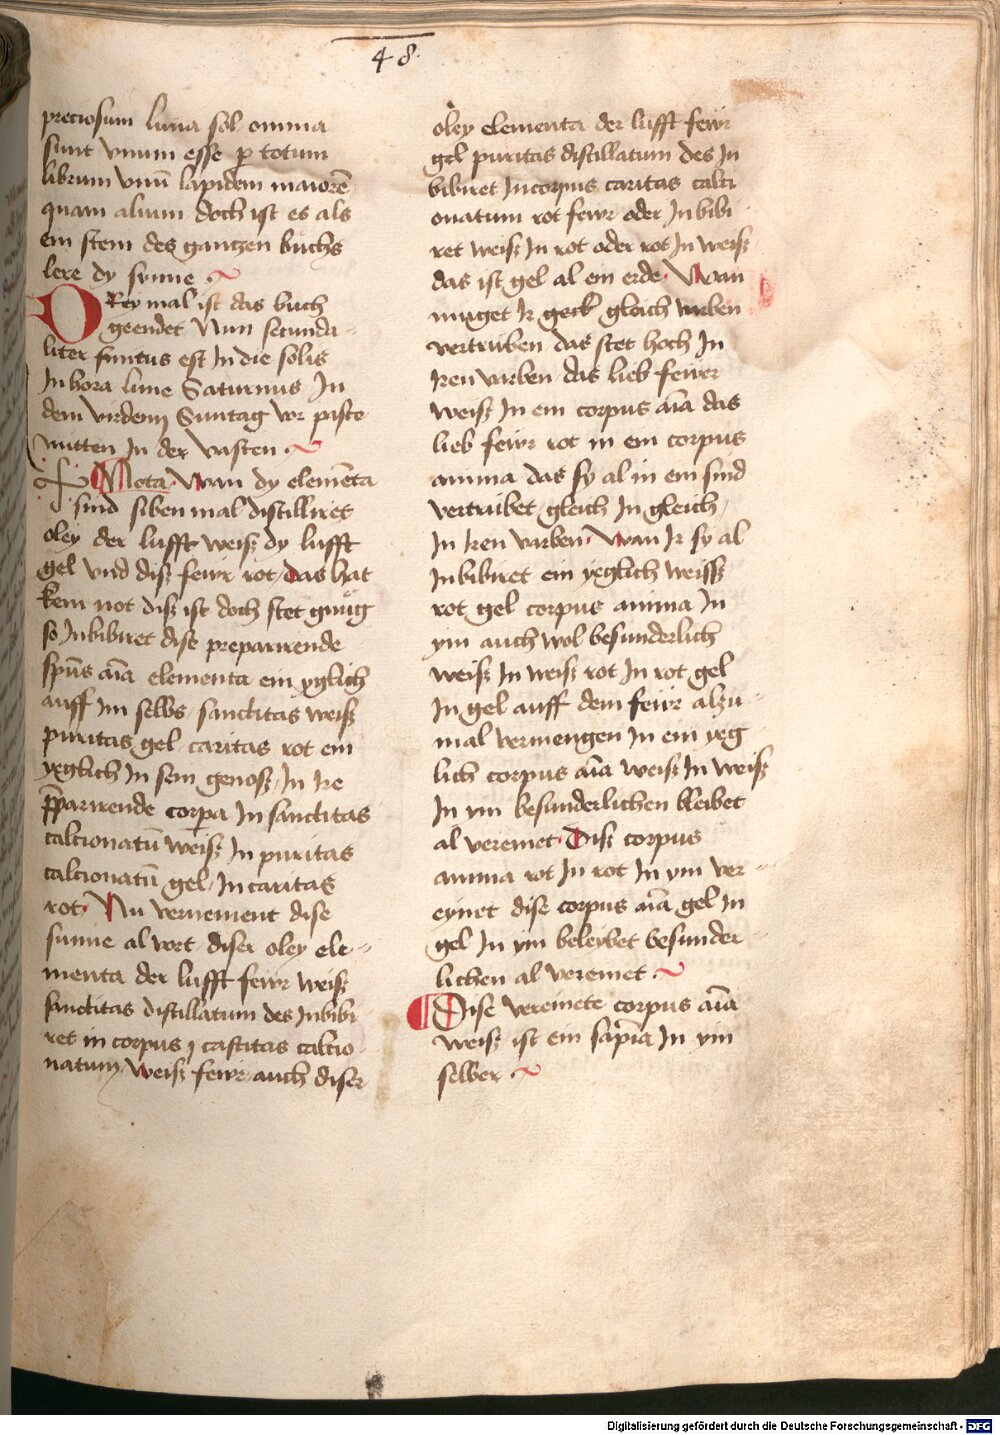 48.
preciosum luna sol omnia
sunt vnum esse p totum
librum vnū lapidem maiorē
quam alium doch ist es als
ein stein des gantzen buchs
lere dy synne
DRey mal ist das buch
geendet Nun secunda
liter finitus est In die solis
In hora lune Saturnus In
dem virdenn Suntag vor pasce
mitten In der vasten
Nota Wan dy elemēta
sind siben mal distilliret
oley der lufft weiß dy lufft
gel vnd diß fewr rot das hat
kein not diß ist doch stet gnůg
so Inbibiret dise preparirende
spūs aīa elementa ein yglich
auff im selbs sanctitas weiß
puritas gel caritas rot ein
yeglich In sein genoß In Ire
pparirende corpa In sanctitas
calcionatū weiß In puritas
calcionatū gel In caritas
rot Nu vernement dise
sunne al wort diser oley ele
menta der lufft fewr weiß
sanctitas distillatum des Inbibi
ret in corpus castitas calcio
natum weiß fewr auch diser
oley elementa der lufft fewr
gel puritas distillatum des In
bibiret Incorpus caritas calci
onatum rot fewr oder Inbibi
ret weiß In rot oder rot In weiß
das ist gel al ein erde Wan
muget Ir geck gleich varben
vertriben das stet hoch In
Iren varben das lieb fewer
weiß In ein corpus aīa das
lieb fewr rot in ein corpus
anima das sy al in ein sind
vertribet gleich In gleich
In Iren varben Wan Ir sy al
Inbibiret ein yeglich weiss
rot gel corpus anima In
ym auch wol besunderlich
weiß In weiß rot In rot gel
In gel auff dem fewr alzu
mal vermengen In ein yeg
lich corpus aīa weiß In weiß
In ym besunderlichen bleibet
al vereinet Diß corpus
anima rot In rot In ym ver
eynet dise corpus aīa gel In
gel In ym beleybet besunder
lichen al vereinet
Dise vereinete corpus aīa
weiß ist ein sapia In ym
selber
Digitalisierung gefördert durch die Deutsche Forschungsgemeinschaft - DFG